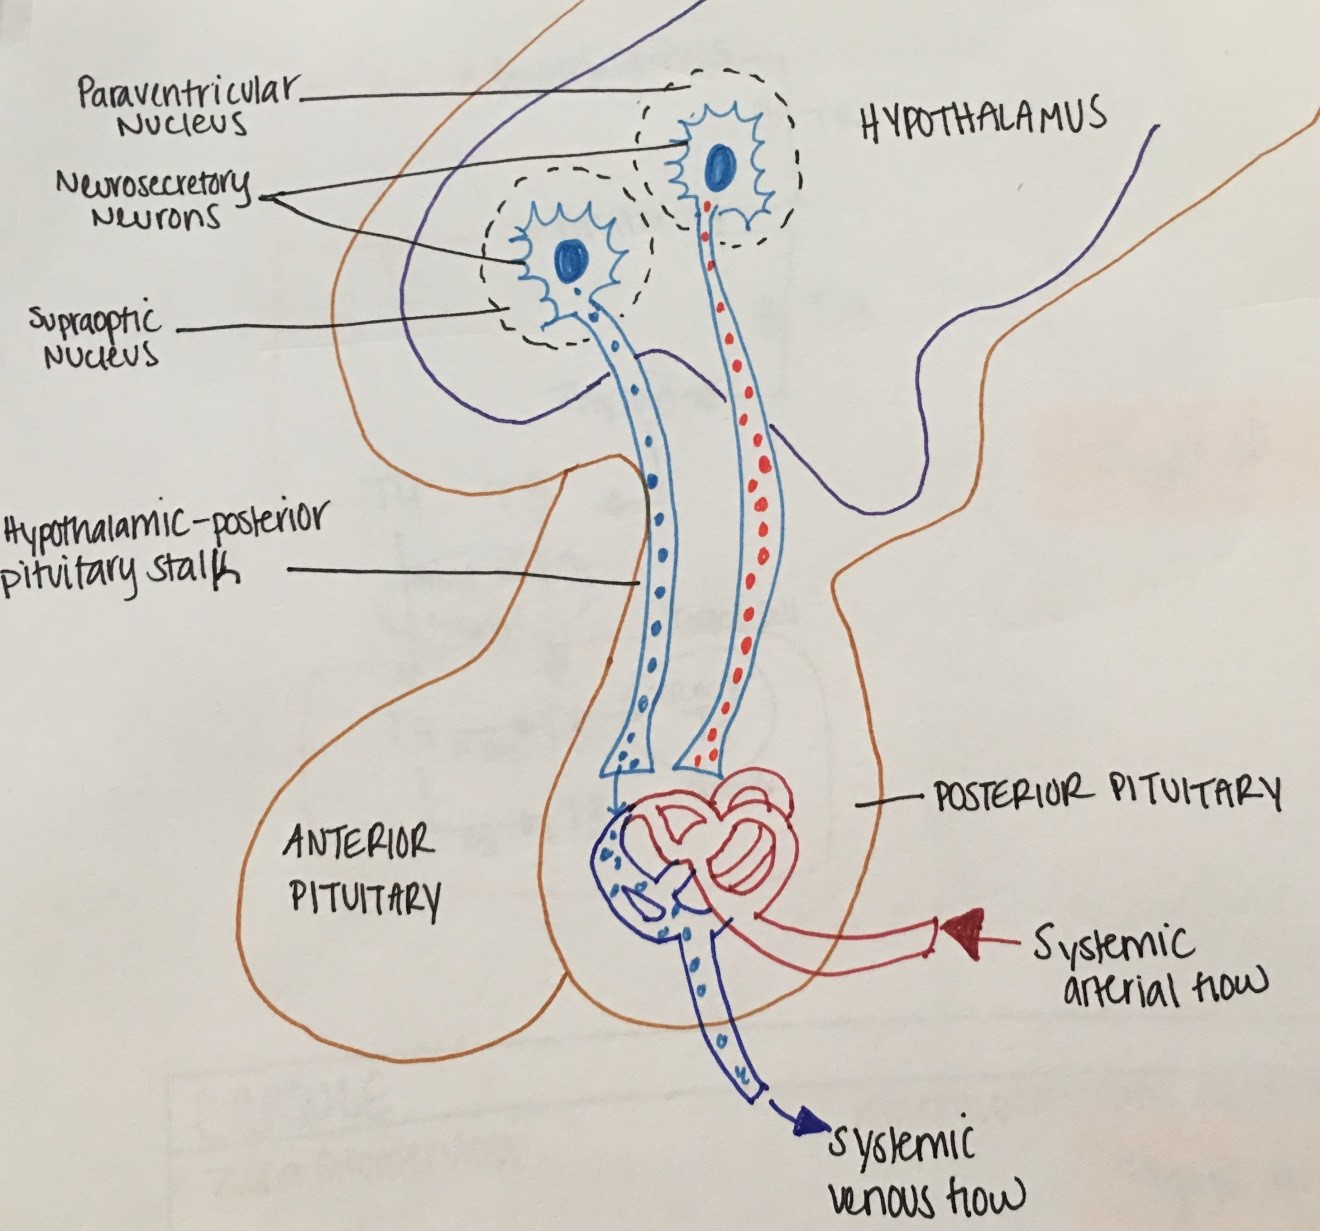 Paraventricular
Nucleus
HYPOTHALAMUS
Neurosecretory
Neurons
Supraoptic
Nucleus
Hypothalamic-posterior
pituitary stalk
POSTERIOR PITUITARY
ANTERIOR
PITUITARY
Systemic
arterial flow
Systemic
venous flow